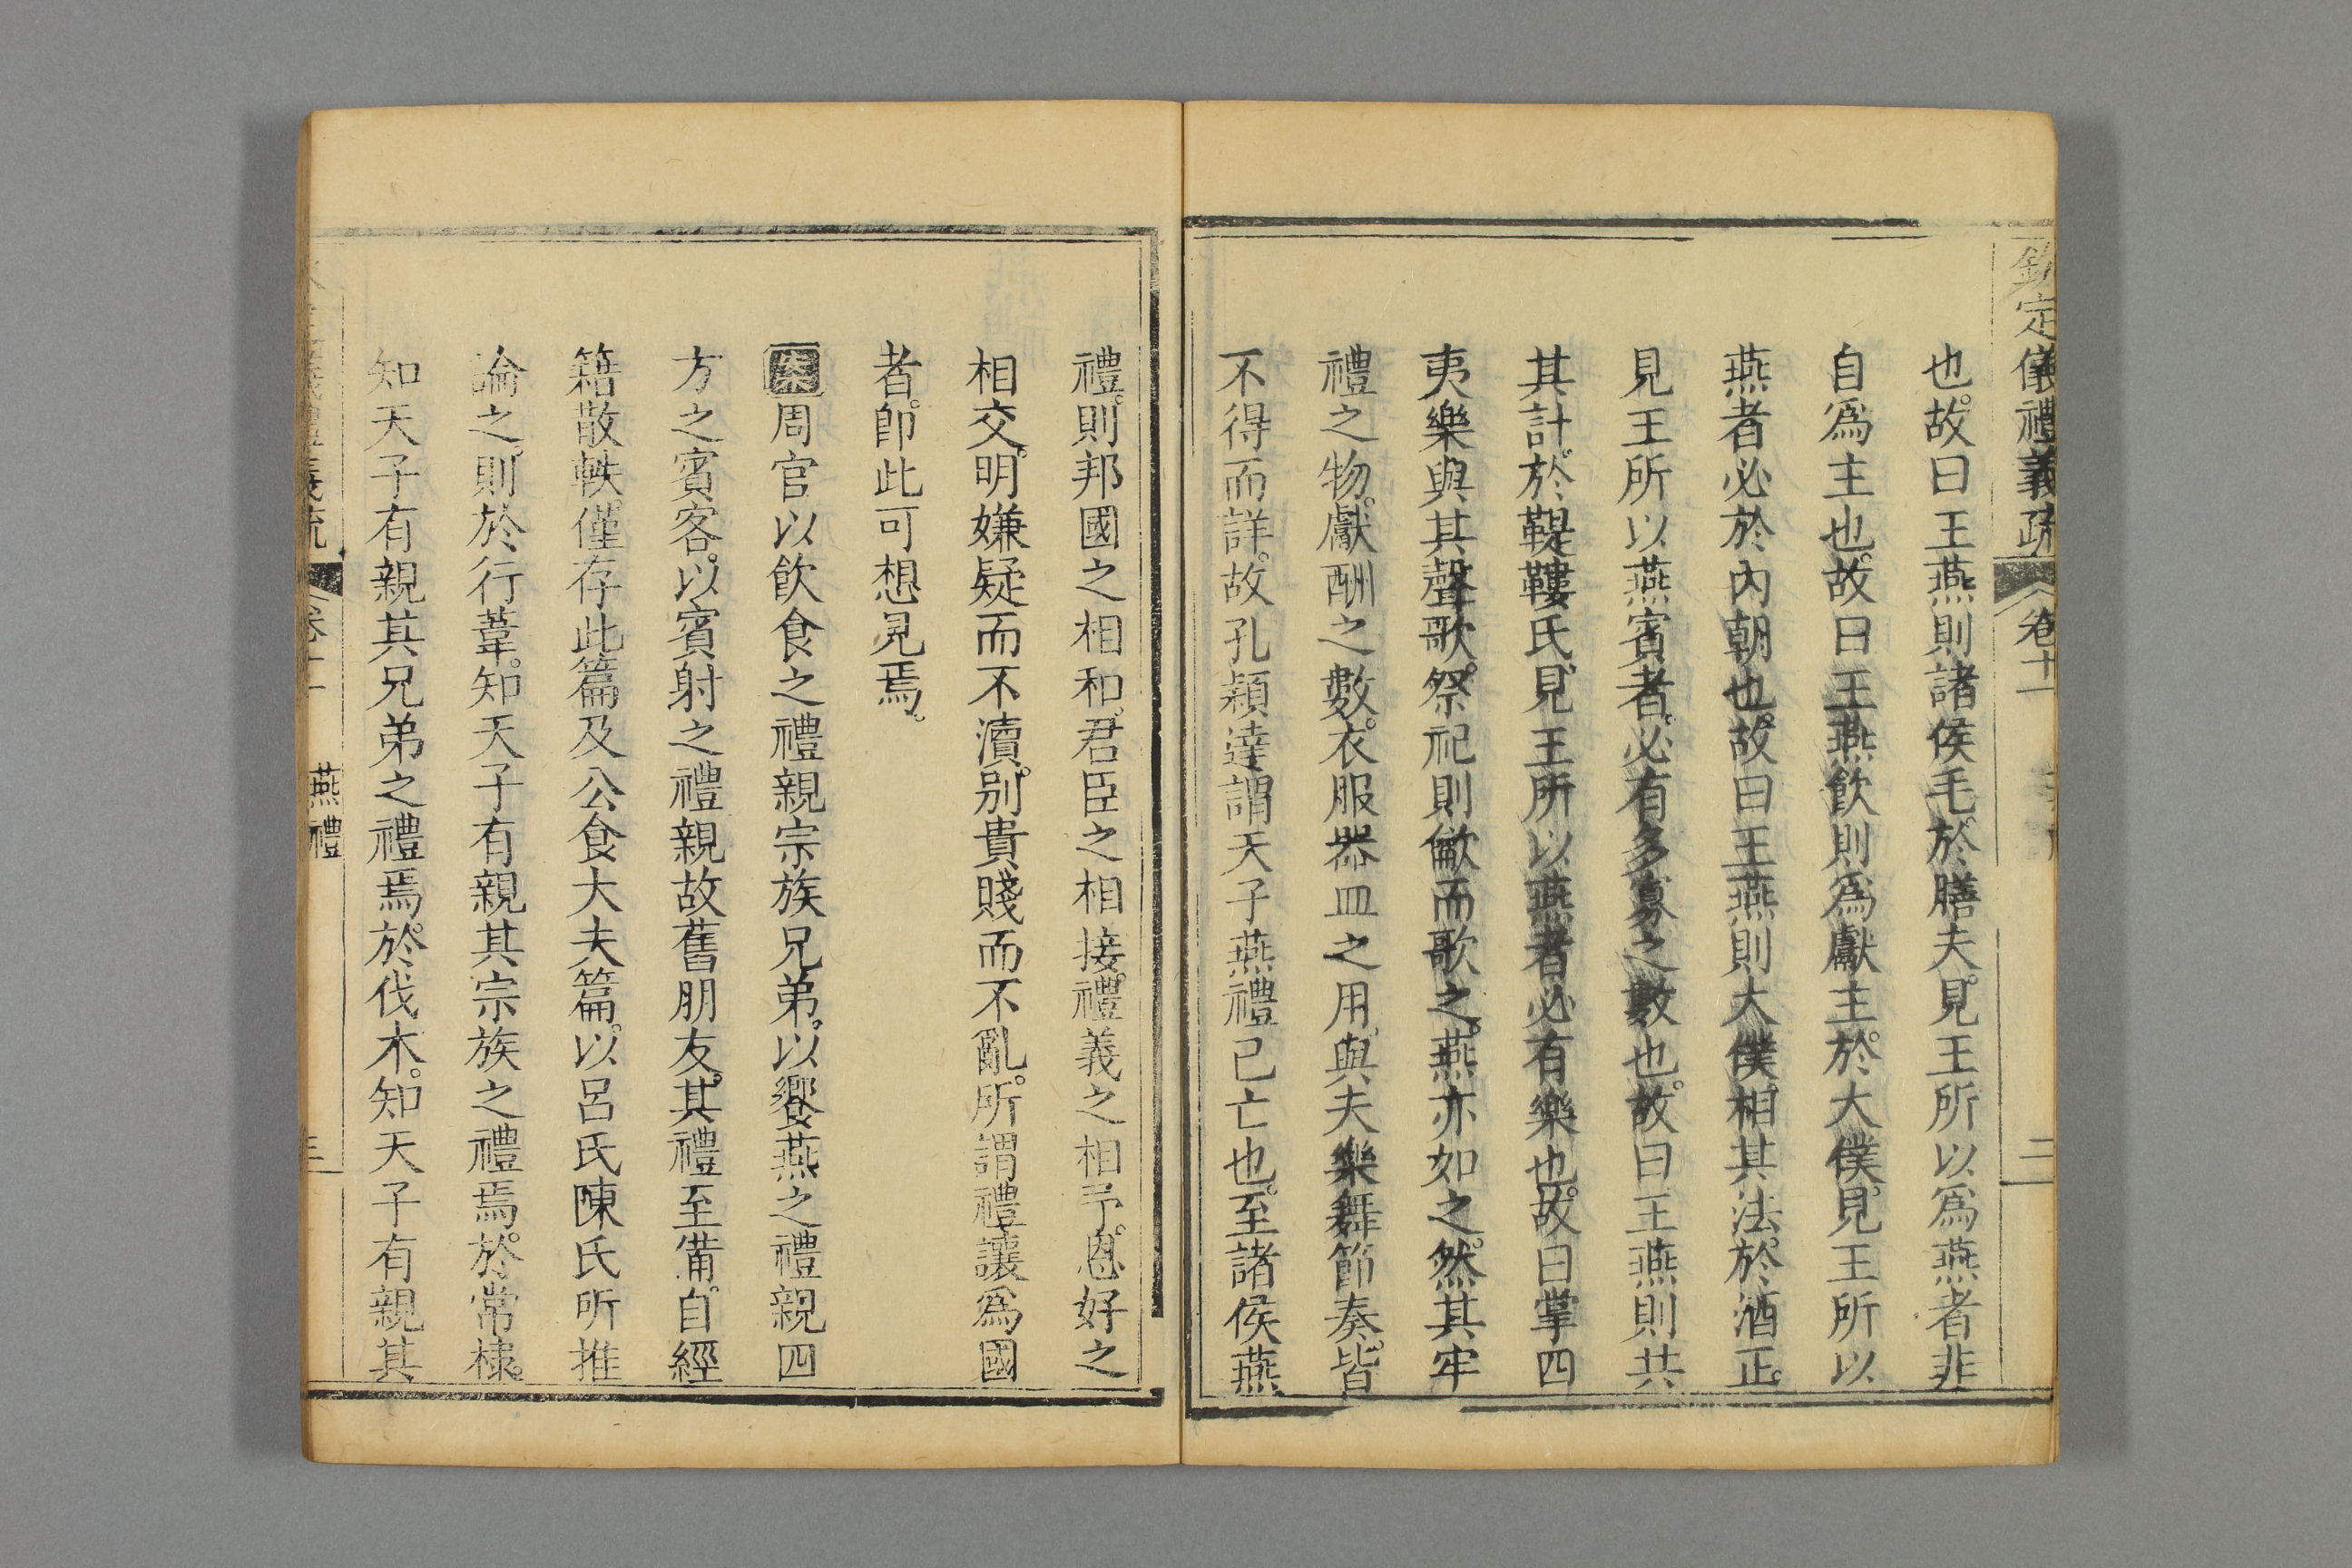 欽定儀禮義疏 卷十一 二
也。故曰王燕則諸侯毛。於膳夫。見王所以爲燕者非
自爲主也。故曰王燕飲則爲獻主。於大僕。見王所以
燕者必於內朝也。故曰王燕則大僕相其法。於酒正。
見王所以燕賓者。必有多寡之數也。故曰王燕則共
其計。於鞮鞻氏。見王所以燕者必有樂也。故曰掌四
夷樂與其聲歌。祭祀則龡而歌之。燕亦如之。然其牢
禮之物。獻酬之數。衣服器皿之用。與夫樂舞節奏。皆
不得而詳。故孔穎達謂天子燕禮已亡也。至諸侯燕
禮。則邦國之相和。君臣之相接。禮義之相予。恩好之
相交。明嫌疑而不瀆。別貴賤而不亂。所謂禮讓爲國
者。卽此可想見焉。
案周官以飲食之禮親宗族兄弟。以饗燕之禮親四
方之賓客。以賓射之禮親故舊朋友。其禮至備。自經
籍散軼。僅存此篇及公食大夫篇。以呂氏陳氏所推
論之。則於行葦。知天子有親其宗族之禮焉。於常棣。
知天子有親其兄弟之禮焉。於伐木。知天子有親其
義禮義疏 卷十一 燕禮 三